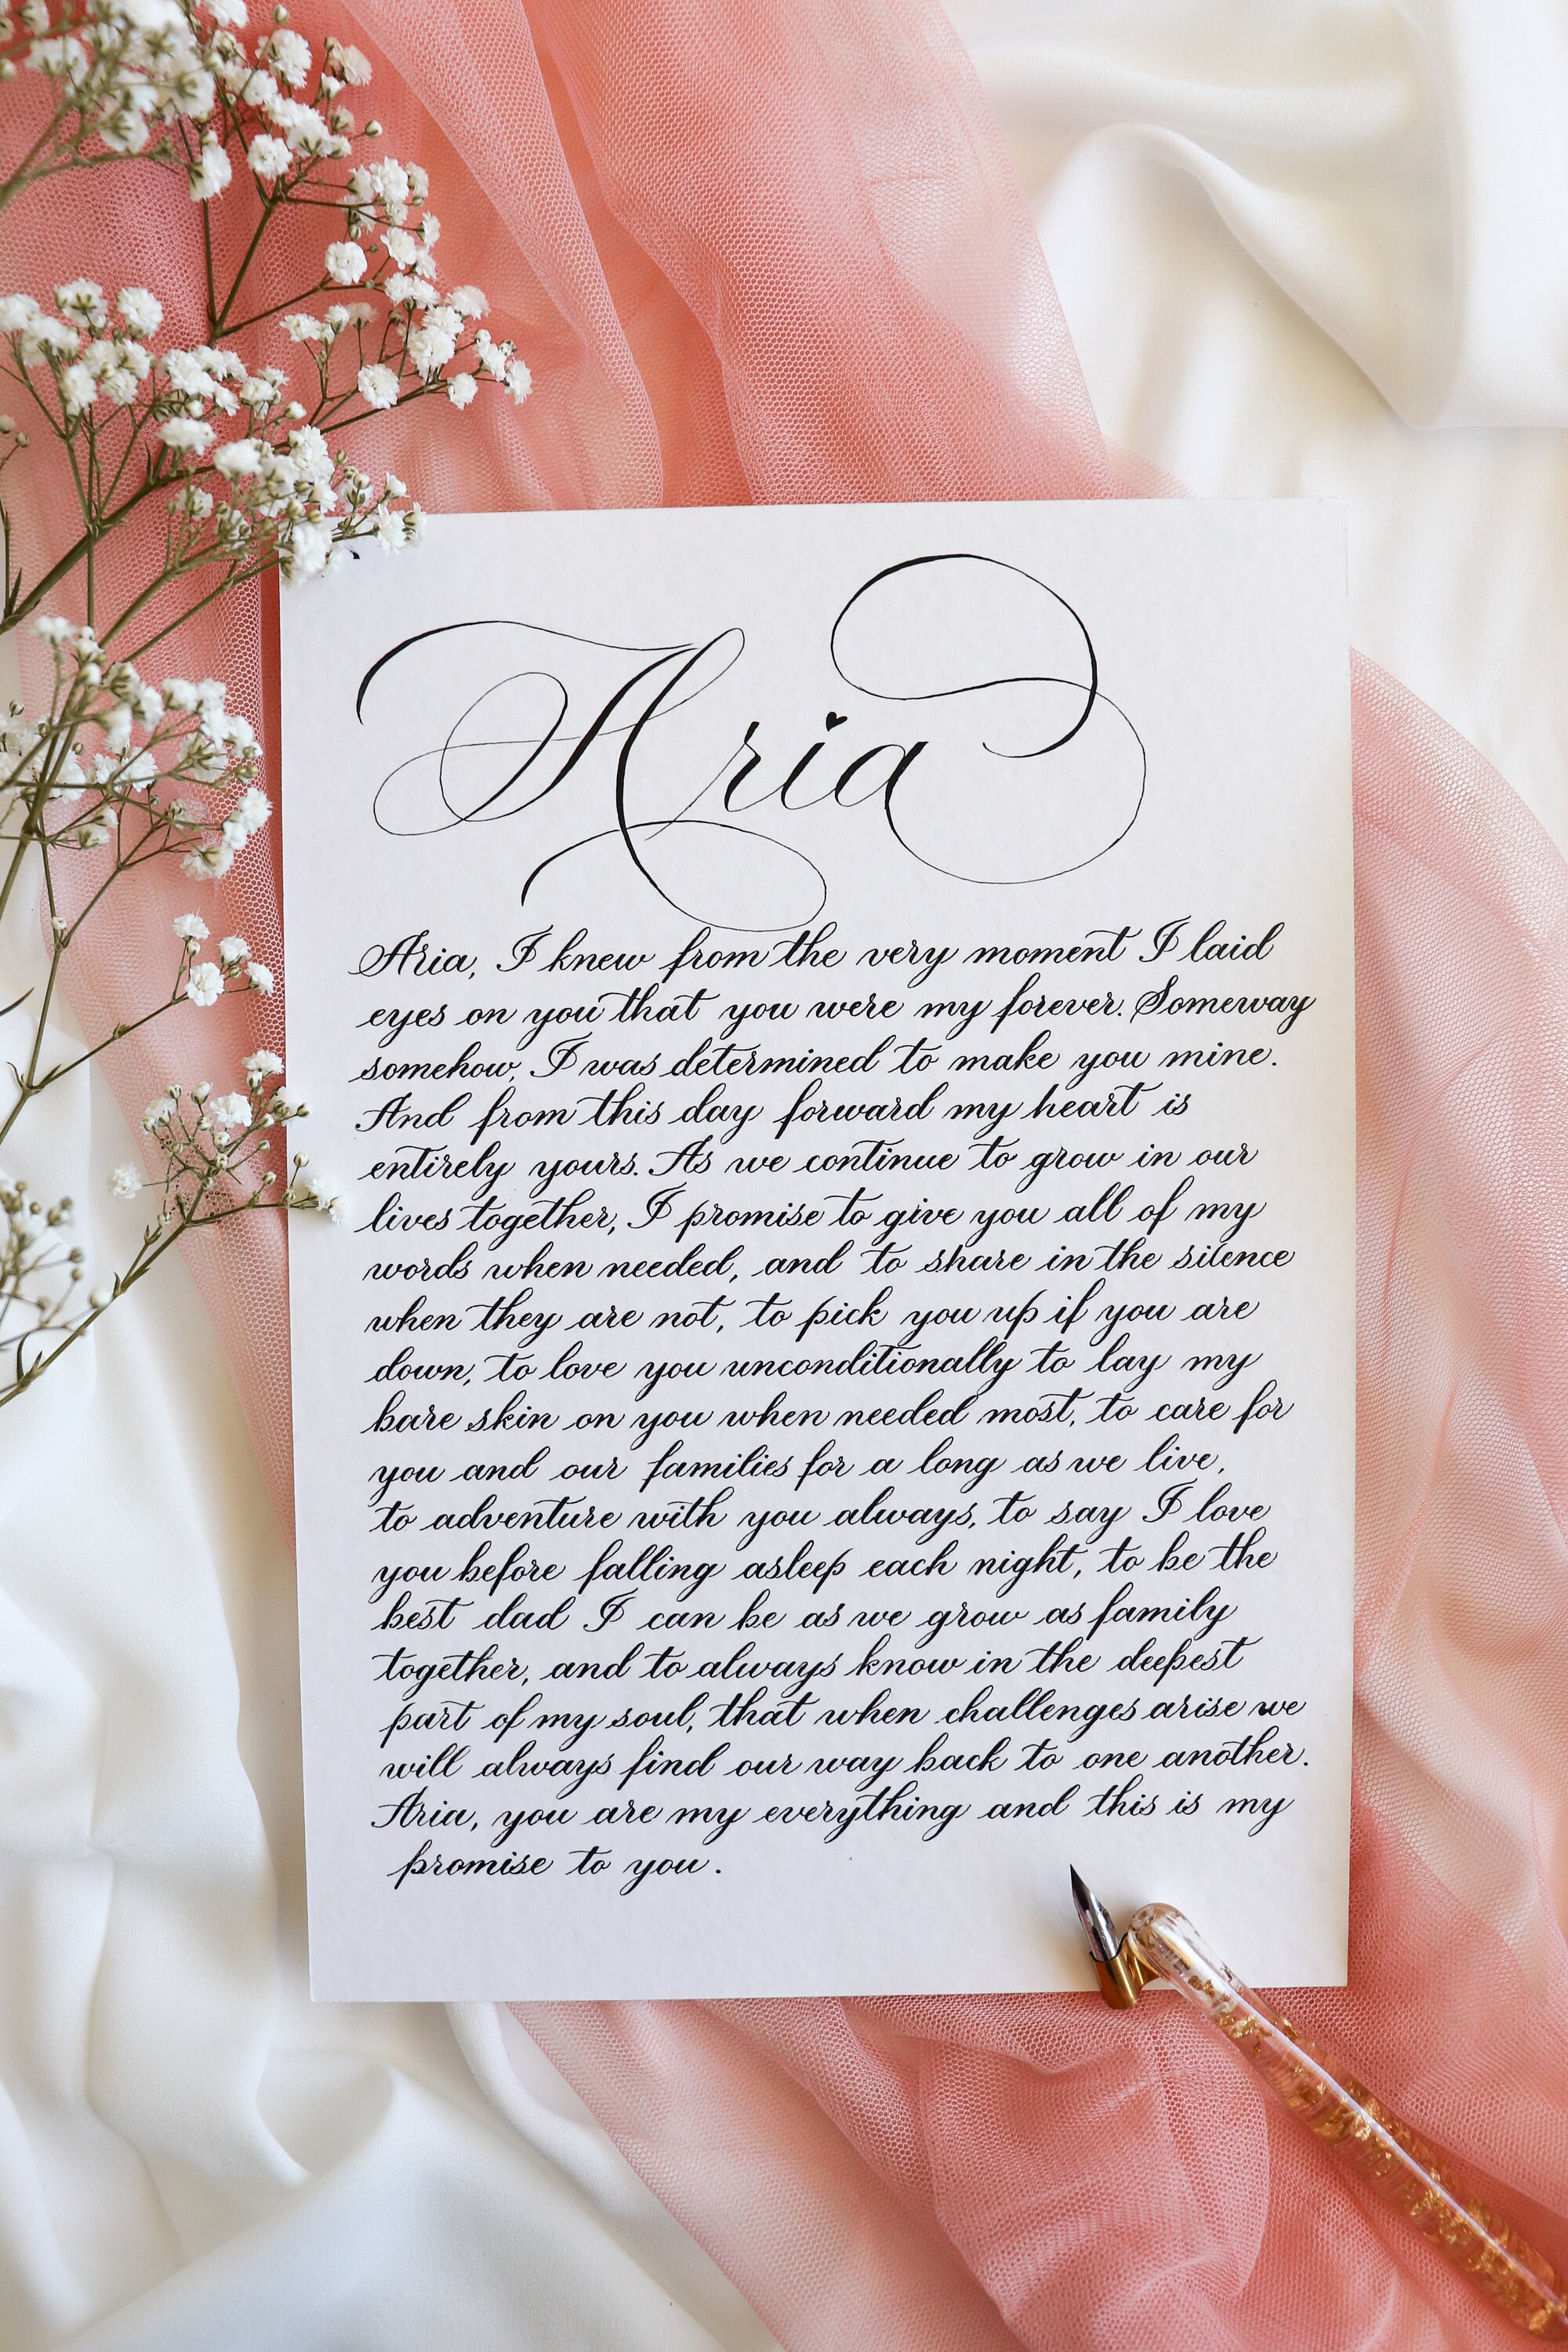 Aria
Aria, I knew from the very moment I laid
eyes on you that you were my forever. Someway
somehow, I was determined to make you mine.
And from this day forward my heart is
entirely yours. As we continue to grow in our
lives together, I promise to give you all of my
words when needed, and to share in the silence
when they are not, to pick you up if you are
down, to love you unconditionally to lay my
bare skin on you when needed most, to care for
you and our families for a long as we live,
to adventure with you always, to say I love
you before falling asleep each night, to be the
best dad I can be as we grow as family
together, and to always know in the deepest
part of my soul, that when challenges arise we
will always find our way back to one another.
Aria, you are my everything and this is my
promise to you.